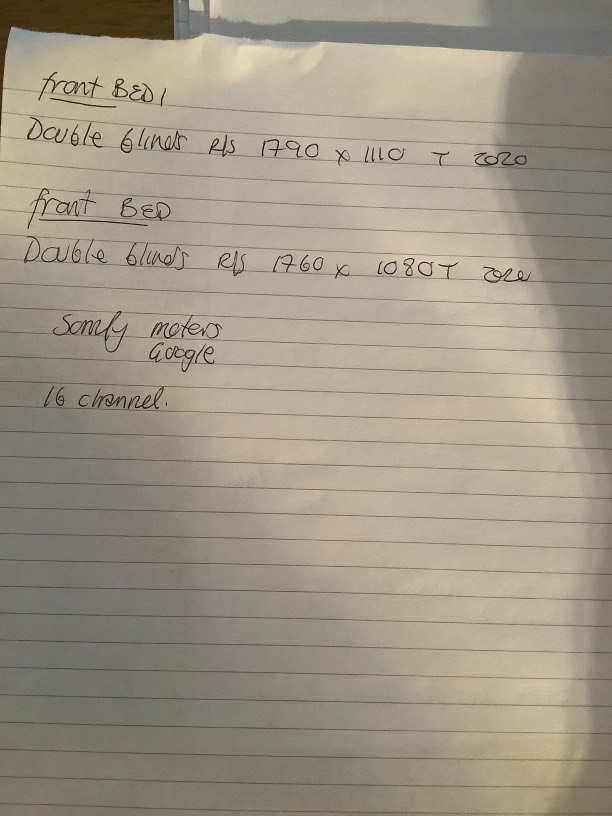 front BED 1
Double blinds R/S 1790 x 1110 T 2020
front BED
Double blinds R/S 1760 x 1080 T 2020
Somfy moters
Google
16 channel.